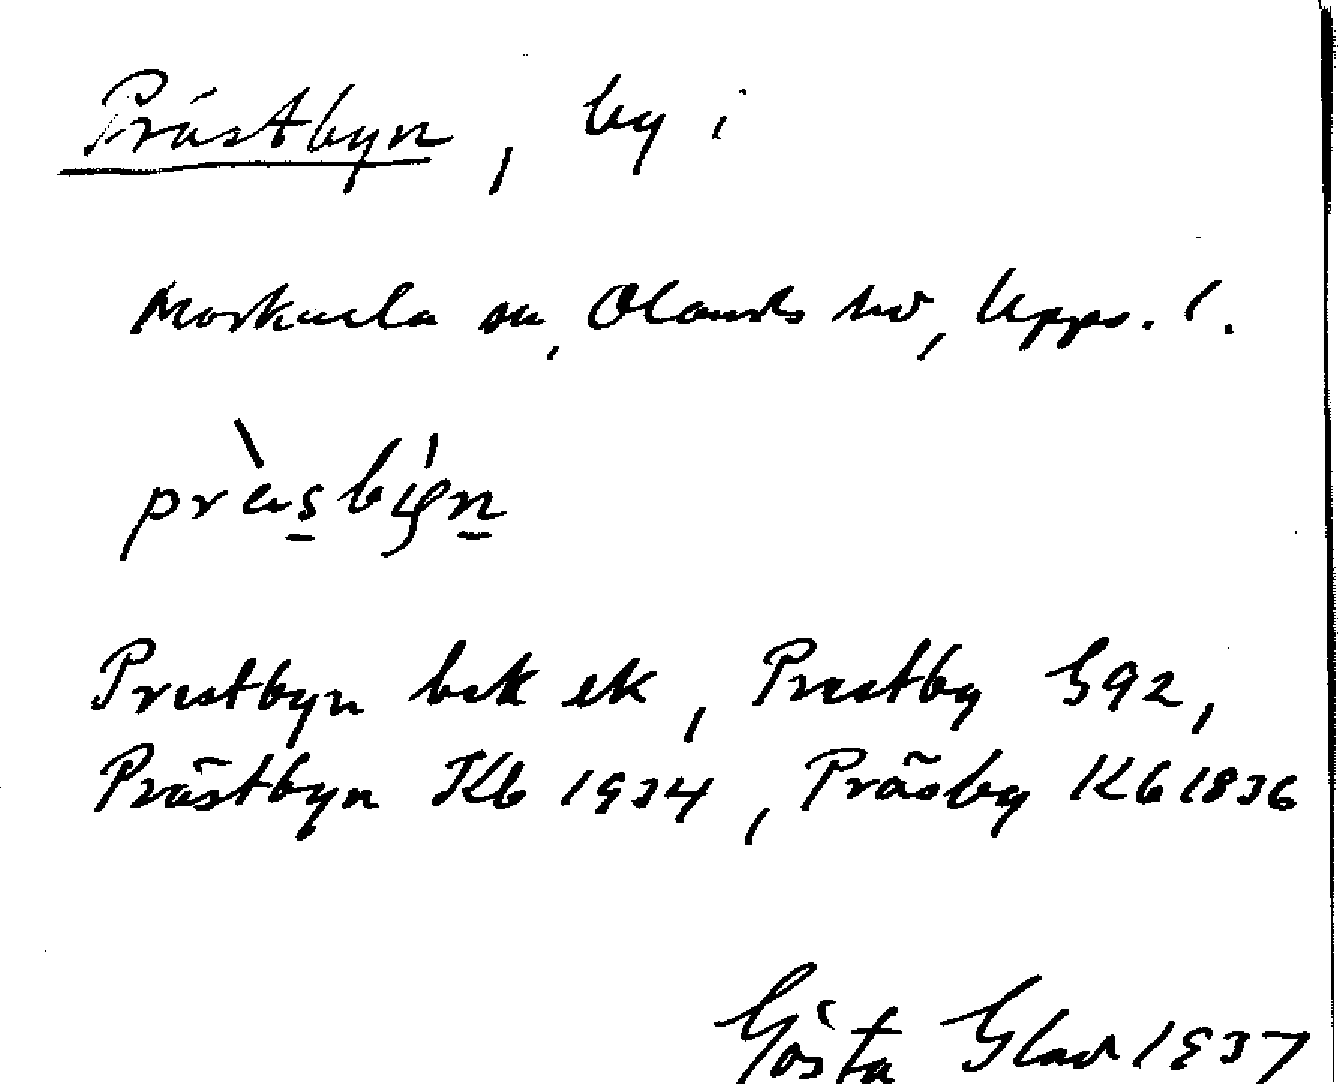 Prästbyn, by i
Morkarla sn, Olands hd, Upps. l.
Prestbyn bek ek, Prestby G92,
Prästbyn Kb 1934, Präsby Kb 1836
Gösta Glad 1937